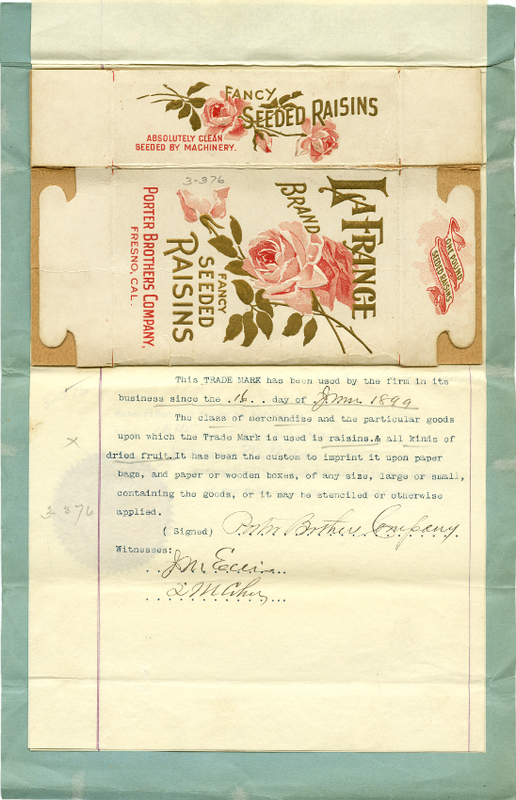 FANCY
SEEDED RAISINS
ABSOLUTELY CLEAN
SEEDED BY MACHINERY.
3-376
LA FRANCE
BRAND
FANCY
SEEDED
RAISINS
PORTER BROTHERS COMPANY,
FRESNO, CAL.
ONE POUND
SEEDED RAISINS
This TRADE MARK has been used by the firm in its
business since the .16.. day of 1899
The class of merchandise and the particular goods
upon which the Trade Mark is used is raisins.& all kinds of
dried fruit.It has been the custom to imprint it upon paper
bags, and paper or wooden boxes, of any size, large or small,
containing the goods, or it may be stenciled or otherwise
applied.
x
3-376
( Signed) Porter Brothers Company
Witnesses: